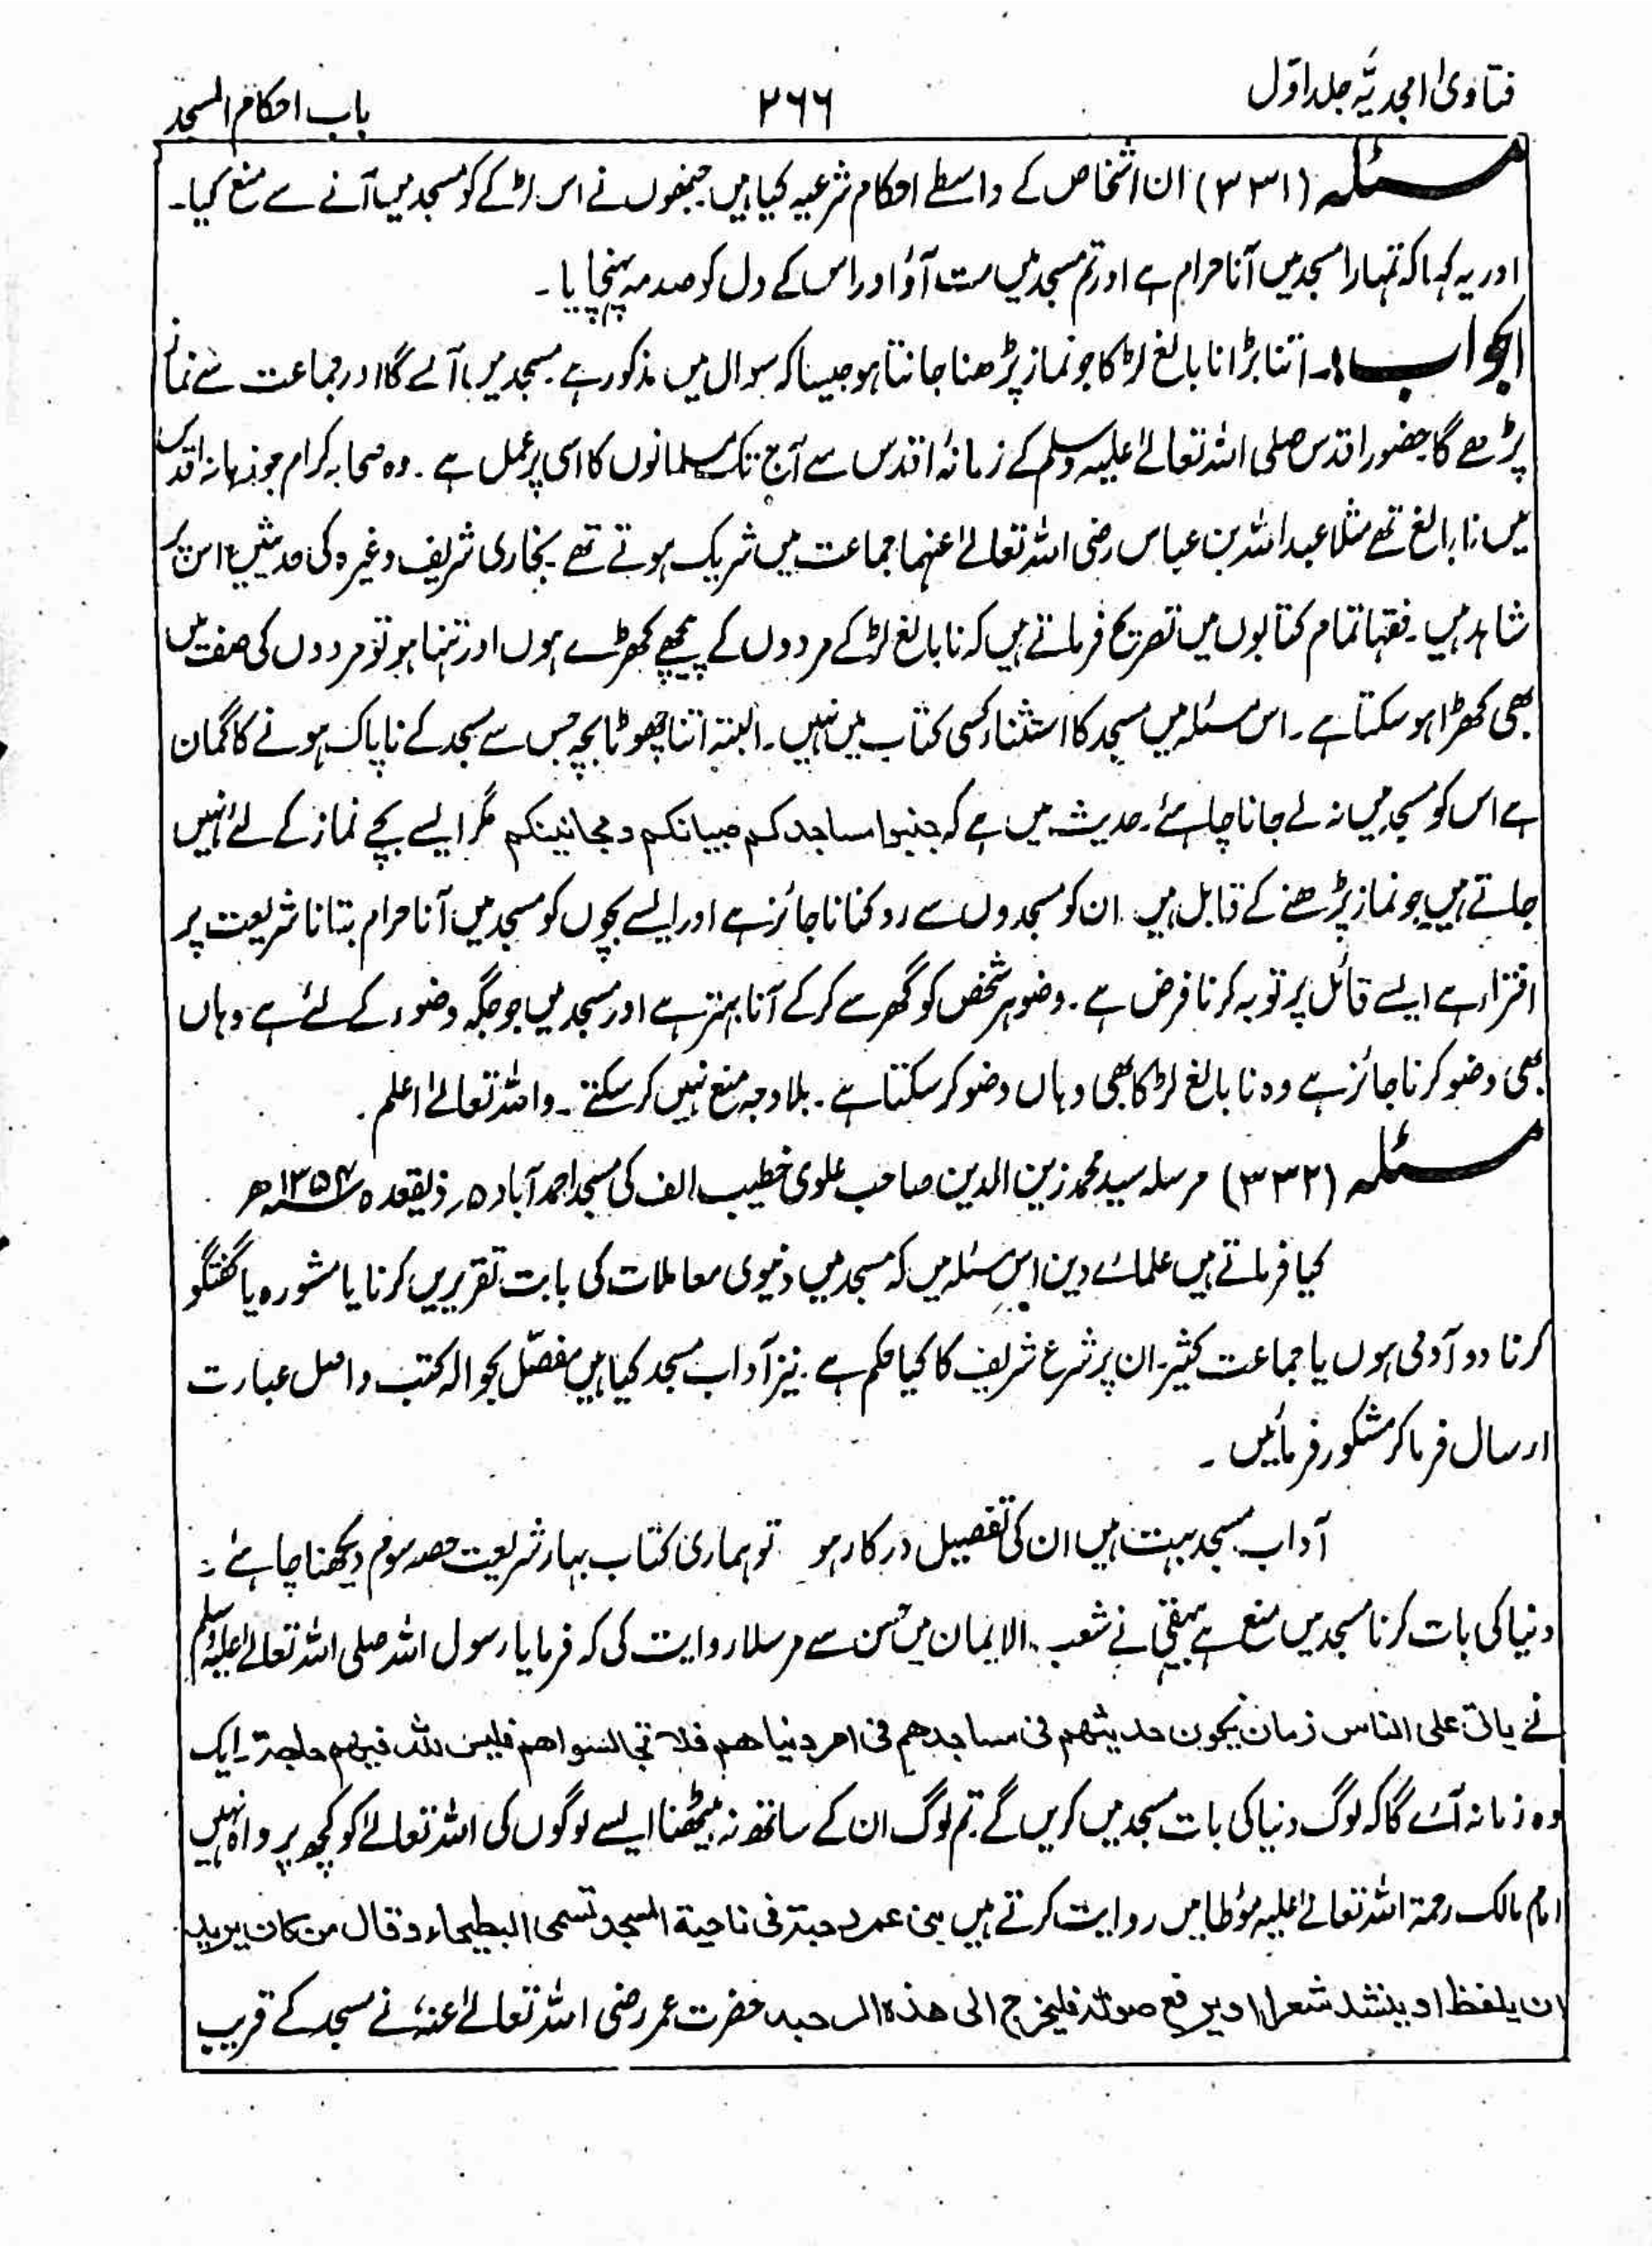 فتاویٰ امجدیہ جلد اوّل
۲۶۶
باب احکام المسجد
مسئلہ (۳۳۱) ان اشخاص کے واسطے احکام شرعیہ کیا ہیں جنھوں نے اس لڑکے کو مسجد میں آنے سے منع کیا۔
اور یہ کہا کہ تمہارا مسجد میں آنا حرام ہے اور تم مسجد میں مت آؤ اور اس کے دل کو صدمہ پہنچایا۔
الجواب:۔ اتنا بڑا نابالغ لڑکا جو نماز پڑھنا جانتا ہو جیسا کہ سوال میں مذکور ہے مسجد میں آئے گا اور جماعت سے نماز
پڑھے گا حضور اقدس صلی اللہ تعالےٰ علیہ وسلم کے زمانۂ اقدس سے آج تک مسلمانوں کا اسی پر عمل ہے۔ وہ صحابہ کرام جو زمانہ اقدس
میں نابالغ تھے مثلاً عبداللہ بن عباس رضی اللہ تعالےٰ عنہما جماعت میں شریک ہوتے تھے۔ بخاری شریف وغیرہ کی حدیثیں اس پر
شاہد ہیں۔ فقہا تمام کتابوں میں تصریح فرماتے ہیں کہ نابالغ لڑکے مردوں کے پیچھے کھڑے ہوں اور تنہا ہو تو مردوں کی صف میں
بھی کھڑا ہو سکتا ہے۔ اس مسئلہ میں مسجد کا استثناء کسی کتاب میں نہیں۔ البتہ اتنا چھوٹا بچہ جس سے مسجد کے ناپاک ہونے کا گمان
ہے اس کو مسجد میں نہ لے جانا چاہئے۔ حدیث میں ہے کہ جنبوا مساجدکم صبیانکم و مجانینکم مگر ایسے بچے نماز کے لئے نہیں
جاتے ہیں جو نماز پڑھنے کے قابل ہیں۔ ان کو مسجدوں سے روکنا ناجائز ہے اور ایسے بچوں کو مسجد میں آنا حرام بتانا شریعت پر
افتراء ہے ایسے قائل پر توبہ کرنا فرض ہے۔ وضو ہر شخص کو گھر سے کرکے آنا بہتر ہے اور مسجد میں جو جگہ وضوء کے لئے ہے وہاں
بھی وضو کرنا جائز ہے وہ نابالغ لڑکا بھی وہاں وضو کر سکتا ہے۔ بلاوجہ منع نہیں کر سکتے۔ واللہ تعالےٰ اعلم۔
مسئلہ (۳۳۲) مرسلہ سید محمد زین الدین صاحب علوی خطیب الف کی مسجد احمد آباد ۵ر ذیقعدہ ۱۳۵۴ھ
کیا فرماتے ہیں علمائے دین اس مسئلہ میں کہ مسجد میں دنیوی معاملات کی بابت تقریریں کرنا یا مشورہ یا گفتگو
کرنا دو آدمی ہوں یا جماعت کثیر۔ ان پر شرع شریف کا کیا حکم ہے۔ نیز آداب مسجد کیا ہیں مفصّل بحوالہ کتب و اصل عبارت
ارسال فرما کر مشکور فرمائیں۔
آداب مسجد بہت ہیں ان کی تفصیل درکار ہو تو ہماری کتاب بہار شریعت حصہ سوم دیکھنا چاہئے :
دنیا کی بات کرنا مسجد میں منع ہے بیہقی نے شعب الایمان میں حسن سے مرسلا روایت کی کہ فرمایا رسول اللہ صلی اللہ تعالےٰ علیہ وسلم
نے یاتی علی الناس زمان یکون حدیثھم فی مساجدھم فی امر دنیاھم فلا تجالسواھم فلیس للہ فیھم حاجۃ۔ ایک
وہ زمانہ آئے گا کہ لوگ دنیا کی بات مسجد میں کریں گے تم لوگ ان کے ساتھ نہ بیٹھنا ایسے لوگوں کی اللہ تعالےٰ کو کچھ پرواہ نہیں
امام مالک رحمۃ اللہ تعالےٰ علیہ مؤطا میں روایت کرتے ہیں بنی عمر رحبۃ فی ناحیۃ المسجد تسمی البطیحاء و قال من کان یرید
ان یلفظ او ینشد شعرا او یرفع صوتہ فلیخرج الی ھذہ الرحبہ حضرت عمر رضی اللہ تعالےٰ عنہ، نے مسجد کے قریب